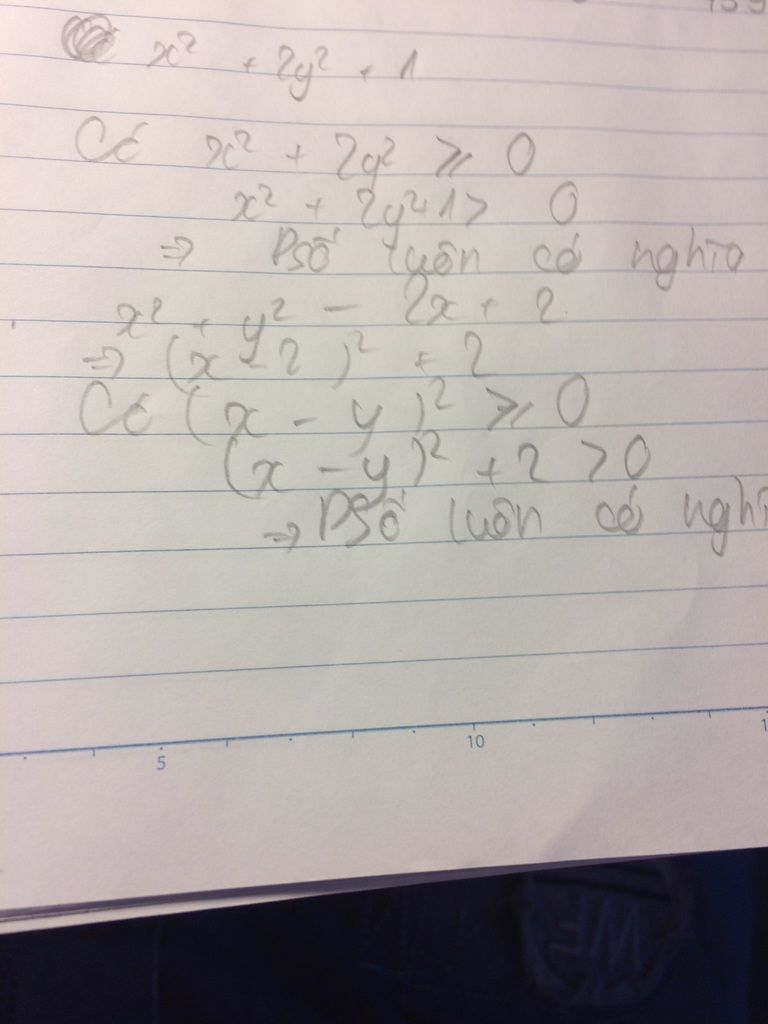 x² + 2y² + 1
Có x² + 2y² ≥ 0
x² + 2y²+1> 0
⇒ PSố luôn có nghĩa
x² + y² - 2x + 2
⇒ (x - 2)² + 2
Có (x - y)² ≥ 0
(x - y)² + 2 > 0
⇒ PSố luôn có nghĩ
5 10